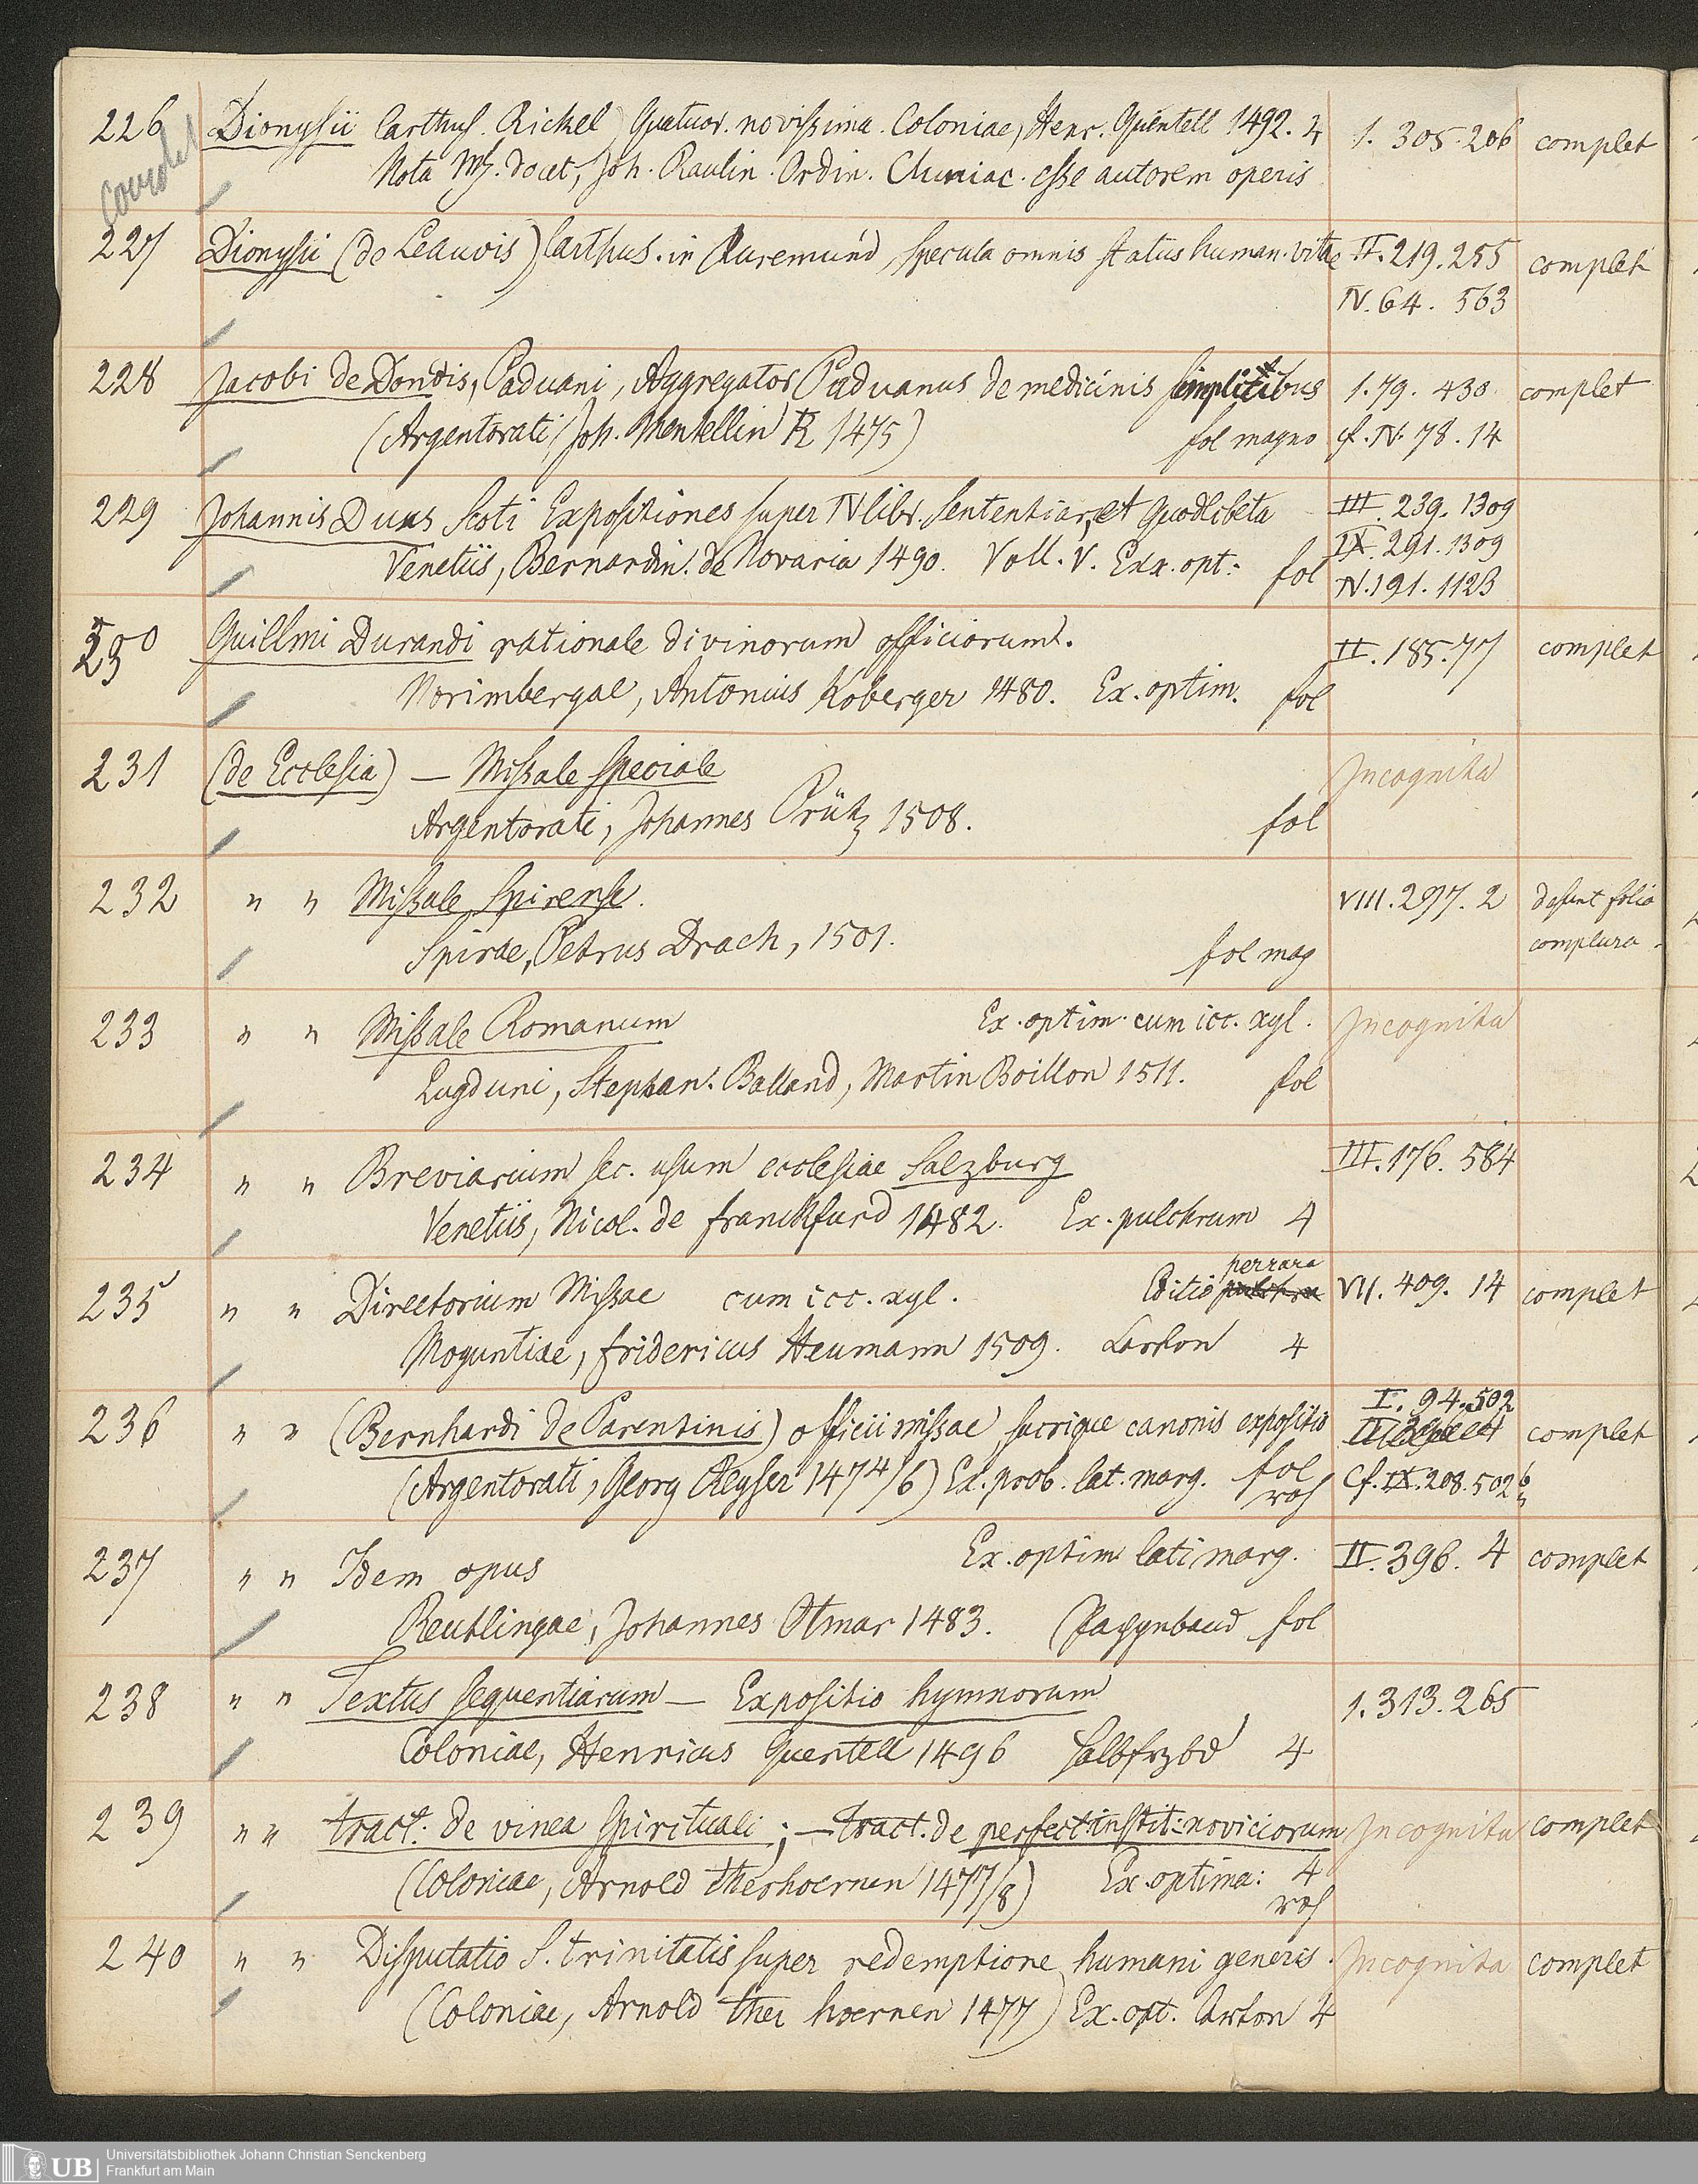 226 Dionysii Carthus. Rickel Quatuor novissima. Coloniae, Henr. Quentell 1492. 4 1. 305. 206 complet
Nota Ms. docet, Joh. Raulin Ordin. Cluniac. esse autorem operis
227 Dionysii (de Leauvis) Carthus. in Ruremund, specula omnis status human. vitae II. 219. 255 complet
IV. 64. 563
228 Jacobi de Dondis, Paduani, Aggregator Paduanus de medicinis simplicibus 1. 79. 430 complet
(Argentorati, Joh. Mentellin R 1475) fol magno cf. IV. 78. 14
229 Johannis Duns Scoti Expositiones super IV libr. Sententiar, et Quodlibeta III. 239. 1309
Venetiis, Bernardin. de Novaria 1490. Voll. V. Exx. opt. fol IX. 291. 1309
IV. 191. 1123
230 Guillmi Durandi rationale divinorum officiorum. II. 185. 77 complet
Norimbergae, Antonius Koberger 1480. Ex. optim. fol
231 (de Ecclesia) — Missale speciale Incognita
Argentorati, Johannes Prütz 1508. fol
232 " " Missale Spirense. VIII. 297. 2 desunt folia
Spirae, Petrus Drach, 1501. fol mag complura.
233 " " Missale Romanum Ex. optim. cum icc. xyl. Incognita
Lugduni, Stephan. Balland, Martin Boillon 1511. fol
234 " " Breviarium sec. usum ecclesiae Salzburg III. 176. 584
Venetiis, Nicol. de franckfurd 1482. Ex. pulchrum 4
perrara
235 " " Directorium Missae cum icc. xyl. Editio pulchra VII. 409. 14 complet
Moguntiae, fridericus Heumann 1509. Carton 4
I. 94. 502
236 " " (Bernhardi de Parentinis) officii missae, sacrique canonis expositio complet
(Argentorati, Georg Reyser 1474/6) Ex. prob. lat. marg. fol Cf. IX. 208. 502 b
roh
237 " " Idem opus Ex. optim. lati marg. II. 396. 4 complet
Reutlingae, Johannes Otmar 1483. (Pappband fol
238 " " Textus sequentiarum — Expositio hymnorum 1. 313. 265
Coloniae, Henricus Quentell 1496 Halbfrzbd 4
239 " " tract. de vinea spirituali; — tract. de perfect. instit. noviciorum Incognita complet
(Coloniae, Arnold therhoernen 1477/8) Ex. optima: 4
roh
240 " " Disputatio S. trinitatis super redemptione humani generis. Incognita complet
(Coloniae, Arnold ther hoernen 1477) Ex. opt. Carton 4
UB Universitätsbibliothek Johann Christian Senckenberg
Frankfurt am Main